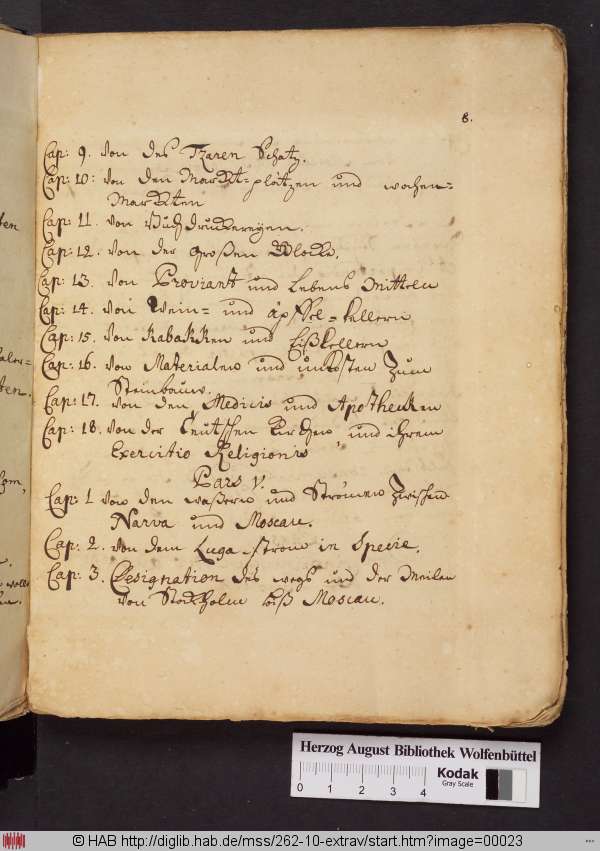 8.
Cap: 9. Von des Tzaren Schatz.
Cap: 10: Von den Marckt-plätzen und wochen-
Marckten
Cap: 11. Von Buchdruckereyen.
Cap: 12. Von der großen Glocke.
Cap: 13. Von Proviant und Lebens Mitteln
Cap: 14. Von Wein- und äpffel-kellern
Cap: 15. Von Kabakken und Eißkellern
Cap: 16. Von Materialen und unkosten Zum
Steinbauw.
Cap: 17. Von den Medicis und Apothecken
Cap: 18. Von der Teutschen Kirchen, und ihrem
Exercitio Religionis
Pars V.
Cap: 1 Von den waßern und Strömen Zwischen
Narva und Moscau.
Cap: 2. Von dem Luga strom in Specie.
Cap: 3. Designation des wegs und der Meilen
von Stockholm biß Moscau.
Herzog August Bibliothek Wolfenbüttel
0 1 2 3 4
Kodak
Gray Scale
© HAB http://diglib.hab.de/mss/262-10-extrav/start.htm?image=00023